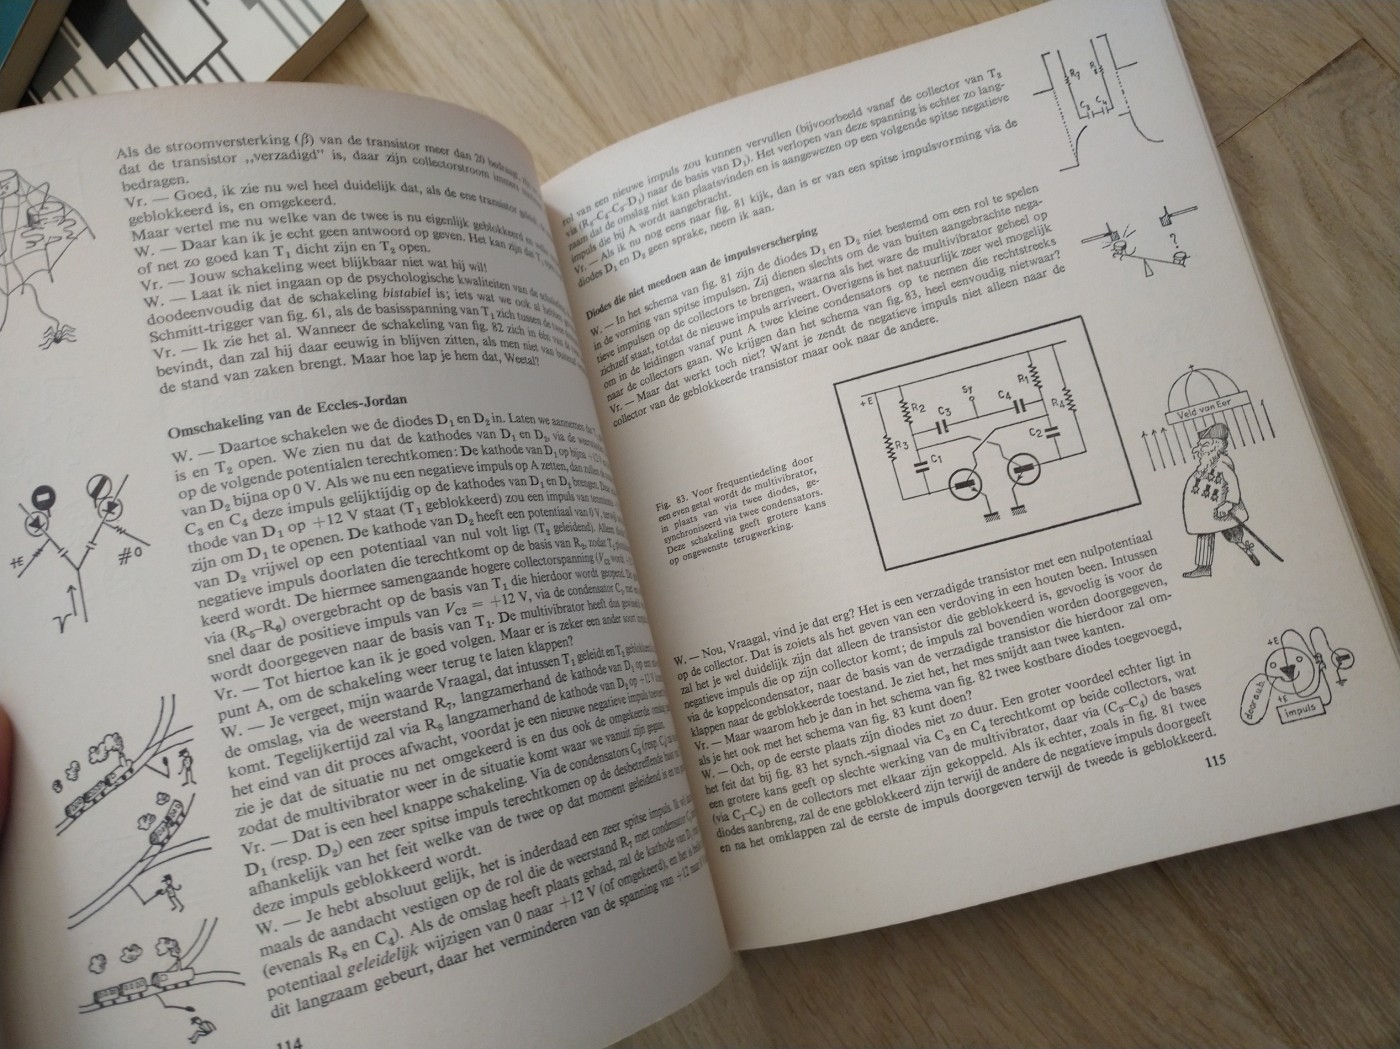 Als de stroomversterking (β) van de transistor meer dan 20 bedraagt,
dat de transistor ,,verzadigd" is, daar zijn collectorstroom
bedragen.
Vr. — Goed, ik zie nu wel heel duidelijk dat, als de ene transistor
geblokkeerd is, en omgekeerd.
Maar vertel me nu welke van de twee is nu eigenlijk geblokkeerd en
W. — Daar kan ik je echt geen antwoord op geven. Het kan zijn dat T₁
of net zo goed kan T₁ dicht zijn en T₂ open.
Vr. — Jouw schakeling weet blijkbaar niet wat hij wil!
W. — Laat ik niet ingaan op de psychologische kwaliteiten van de
doodeenvoudig dat de schakeling bistabiel is; iets wat we ook al
Schmitt-trigger van fig. 61, als de basisspanning van T₁ zich tussen de
Vr. — Ik zie het al. Wanneer de schakeling van fig. 82 zich in één van
bevindt, dan zal hij daar eeuwig in blijven zitten, als men niet van
de stand van zaken brengt. Maar hoe lap je hem dat, Weetal?
Omschakeling van de Eccles-Jordan
W. — Daartoe schakelen we de diodes D₁ en D₂ in. Laten we aannemen dat
is en T₂ open. We zien nu dat de kathodes van D₁ en D₂, via de
op de volgende potentialen terechtkomen: De kathode van D₁ op bijna
van D₂ bijna op 0 V. Als we nu een negatieve impuls op A zetten, dan zullen
C₃ en C₄ deze impuls gelijktijdig op de kathodes van D₁ en D₂ brengen. Daar
thode van D₁ op +12 V staat (T₁ geblokkeerd) zou een impuls van
zijn om D₁ te openen. De kathode van D₂ heeft een potentiaal van 0 V,
van D₂ vrijwel op een potentiaal van nul volt ligt (T₂ geleidend).
negatieve impuls doorlaten die terechtkomt op de basis van R₂, zodat T₂
keerd wordt. De hiermee samengaande hogere collectorspanning
via (R₅–R₆) overgebracht op de basis van T₁ die hierdoor wordt geopend.
snel daar de positieve impuls van V_C2 = +12 V, via de condensator C₂
wordt doorgegeven naar de basis van T₁. De multivibrator heeft dus
Vr. — Tot hiertoe kan ik je goed volgen. Maar er is zeker een ander soort
punt A, om de schakeling weer terug te laten klappen?
W. — Je vergeet, mijn waarde Vraagal, dat intussen T₁ geleidt en T₂
de omslag, via de weerstand R₇, langzamerhand de kathode van D₁ op
komt. Tegelijkertijd zal via R₈ langzamerhand de kathode van D₂ op +12 V
het eind van dit proces afwacht, voordat je een nieuwe negatieve impuls
zie je dat de situatie nu net omgekeerd is en dus ook de omgekeerde
zodat de multivibrator weer in de situatie komt waar we vanuit zijn gegaan.
Vr. — Dat is een heel knappe schakeling. Via de condensators C₃ (resp. C₄)
D₁ (resp. D₂) een zeer spitse impuls terechtkomen op de desbetreffende
afhankelijk van het feit welke van de twee op dat moment geleidend is en
deze impuls geblokkeerd wordt.
W. — Je hebt absoluut gelijk, het is inderdaad een zeer spitse impuls. Ik wil
maals de aandacht vestigen op de rol die de weerstand R₇ met condensator C₃
(evenals R₈ en C₄). Als de omslag heeft plaats gehad, zal de kathode van D₁
potentiaal geleidelijk wijzigen van 0 naar +12 V (of omgekeerd), en het is
dit langzaam gebeurt, daar het verminderen van de spanning van +12
114
+E
#0
rol van een nieuwe impuls zou kunnen vervullen (bijvoorbeeld vanaf de collector van T₂
via (R₈-C₄-C₃-D₁) naar de basis van D₁). Het verlopen van deze spanning is echter zo lang-
zaam dat de omslag niet kan plaatsvinden en is aangewezen op een volgende spitse negatieve
impuls die bij A wordt aangebracht.
Vr. — Als ik nu nog eens naar fig. 81 kijk, dan is er van een spitse impulsvorming via de
diodes D₁ en D₂ geen sprake, neem ik aan.
Diodes die niet meedoen aan de impulsverscherping
W. — In het schema van fig. 81 zijn de diodes D₁ en D₂ niet bestemd om een rol te spelen
in de vorming van spitse impulsen. Zij dienen slechts om de van buiten aangebrachte nega-
tieve impulsen op de collectors te brengen, waarna als het ware de multivibrator geheel op
zichzelf staat, totdat de nieuwe impuls arriveert. Overigens is het natuurlijk zeer wel mogelijk
om in de leidingen vanaf punt A twee kleine condensators op te nemen die rechtstreeks
naar de collectors gaan. We krijgen dan het schema van fig. 83, heel eenvoudig nietwaar?
Vr. — Maar dat werkt toch niet? Want je zendt de negatieve impuls niet alleen naar de
collector van de geblokkeerde transistor maar ook naar de andere.
R₇
R₈
C₃
C₄
?
+E
R₂
R₃
C₁
C₃
Sy
C₄
R₁
R₄
C₂
Fig. 83. Voor frequentiedeling door
een even getal wordt de multivibrator,
in plaats van via twee diodes, ge-
synchroniseerd via twee condensators.
Deze schakeling geeft grotere kans
op ongewenste terugwerking.
Veld van Eer
W. — Nou, Vraagal, vind je dat erg? Het is een verzadigde transistor met een nulpotentiaal
op de collector. Dat is zoiets als het geven van een verdoving in een houten been. Intussen
zal het je wel duidelijk zijn dat alleen de transistor die geblokkeerd is, gevoelig is voor de
negatieve impuls die op zijn collector komt; de impuls zal bovendien worden doorgegeven,
via de koppelcondensator, naar de basis van de verzadigde transistor die hierdoor zal om-
klappen naar de geblokkeerde toestand. Je ziet het, het mes snijdt aan twee kanten.
Vr. — Maar waarom heb je dan in het schema van fig. 82 twee kostbare diodes toegevoegd,
als je het ook met het schema van fig. 83 kunt doen?
W. — Och, op de eerste plaats zijn diodes niet zo duur. Een groter voordeel echter ligt in
het feit dat bij fig. 83 het synch.-signaal via C₃ en C₄ terechtkomt op beide collectors, wat
een grotere kans geeft op slechte werking van de multivibrator, daar via (C₃–C₄) de bases
(via C₁-C₂) en de collectors met elkaar zijn gekoppeld. Als ik echter, zoals in fig. 81 twee
diodes aanbreng, zal de ene geblokkeerd zijn terwijl de andere de negatieve impuls doorgeeft
en na het omklappen zal de eerste de impuls doorgeven terwijl de tweede is geblokkeerd.
+E
+E
impuls
115